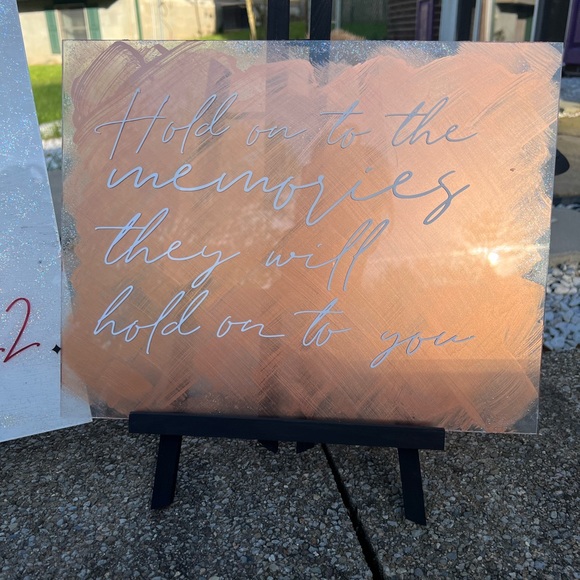 Hold on to the
memories
they will
hold on to you
2